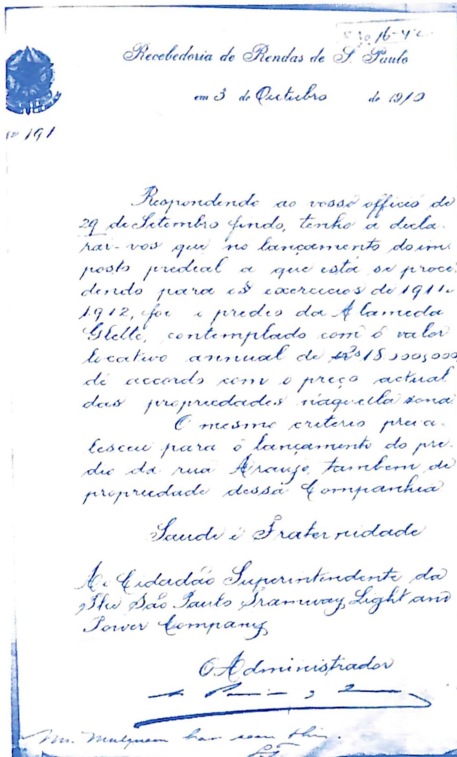 16-4
Recebedoria de Rendas de S. Paulo
em 3 de Outubro de 1910
Nº 191
Respondendo ao vosso officio de
29 de Setembro findo, tenho a decla-
rar-vos que no lançamento do im
posto predial a que está se proce
dendo para os exercicios de 1911 e
1912, foi o predio da Alameda
Glette, contemplado com o valor
locativo annual de Rs 18:000,000
de accordo com o preço actual
das propriedades naquella zona
O mesmo criterio preva-
lesceu para o lançamento do pre
dio da rua Araujo, tambem de
propriedade dessa Companhia
Saude e Fraternidade
Ao Cidadão Superintendente da
The São Paulo Tramway, Light and
Power Company
O Administrador
Mr. Mulqueen has seen this.